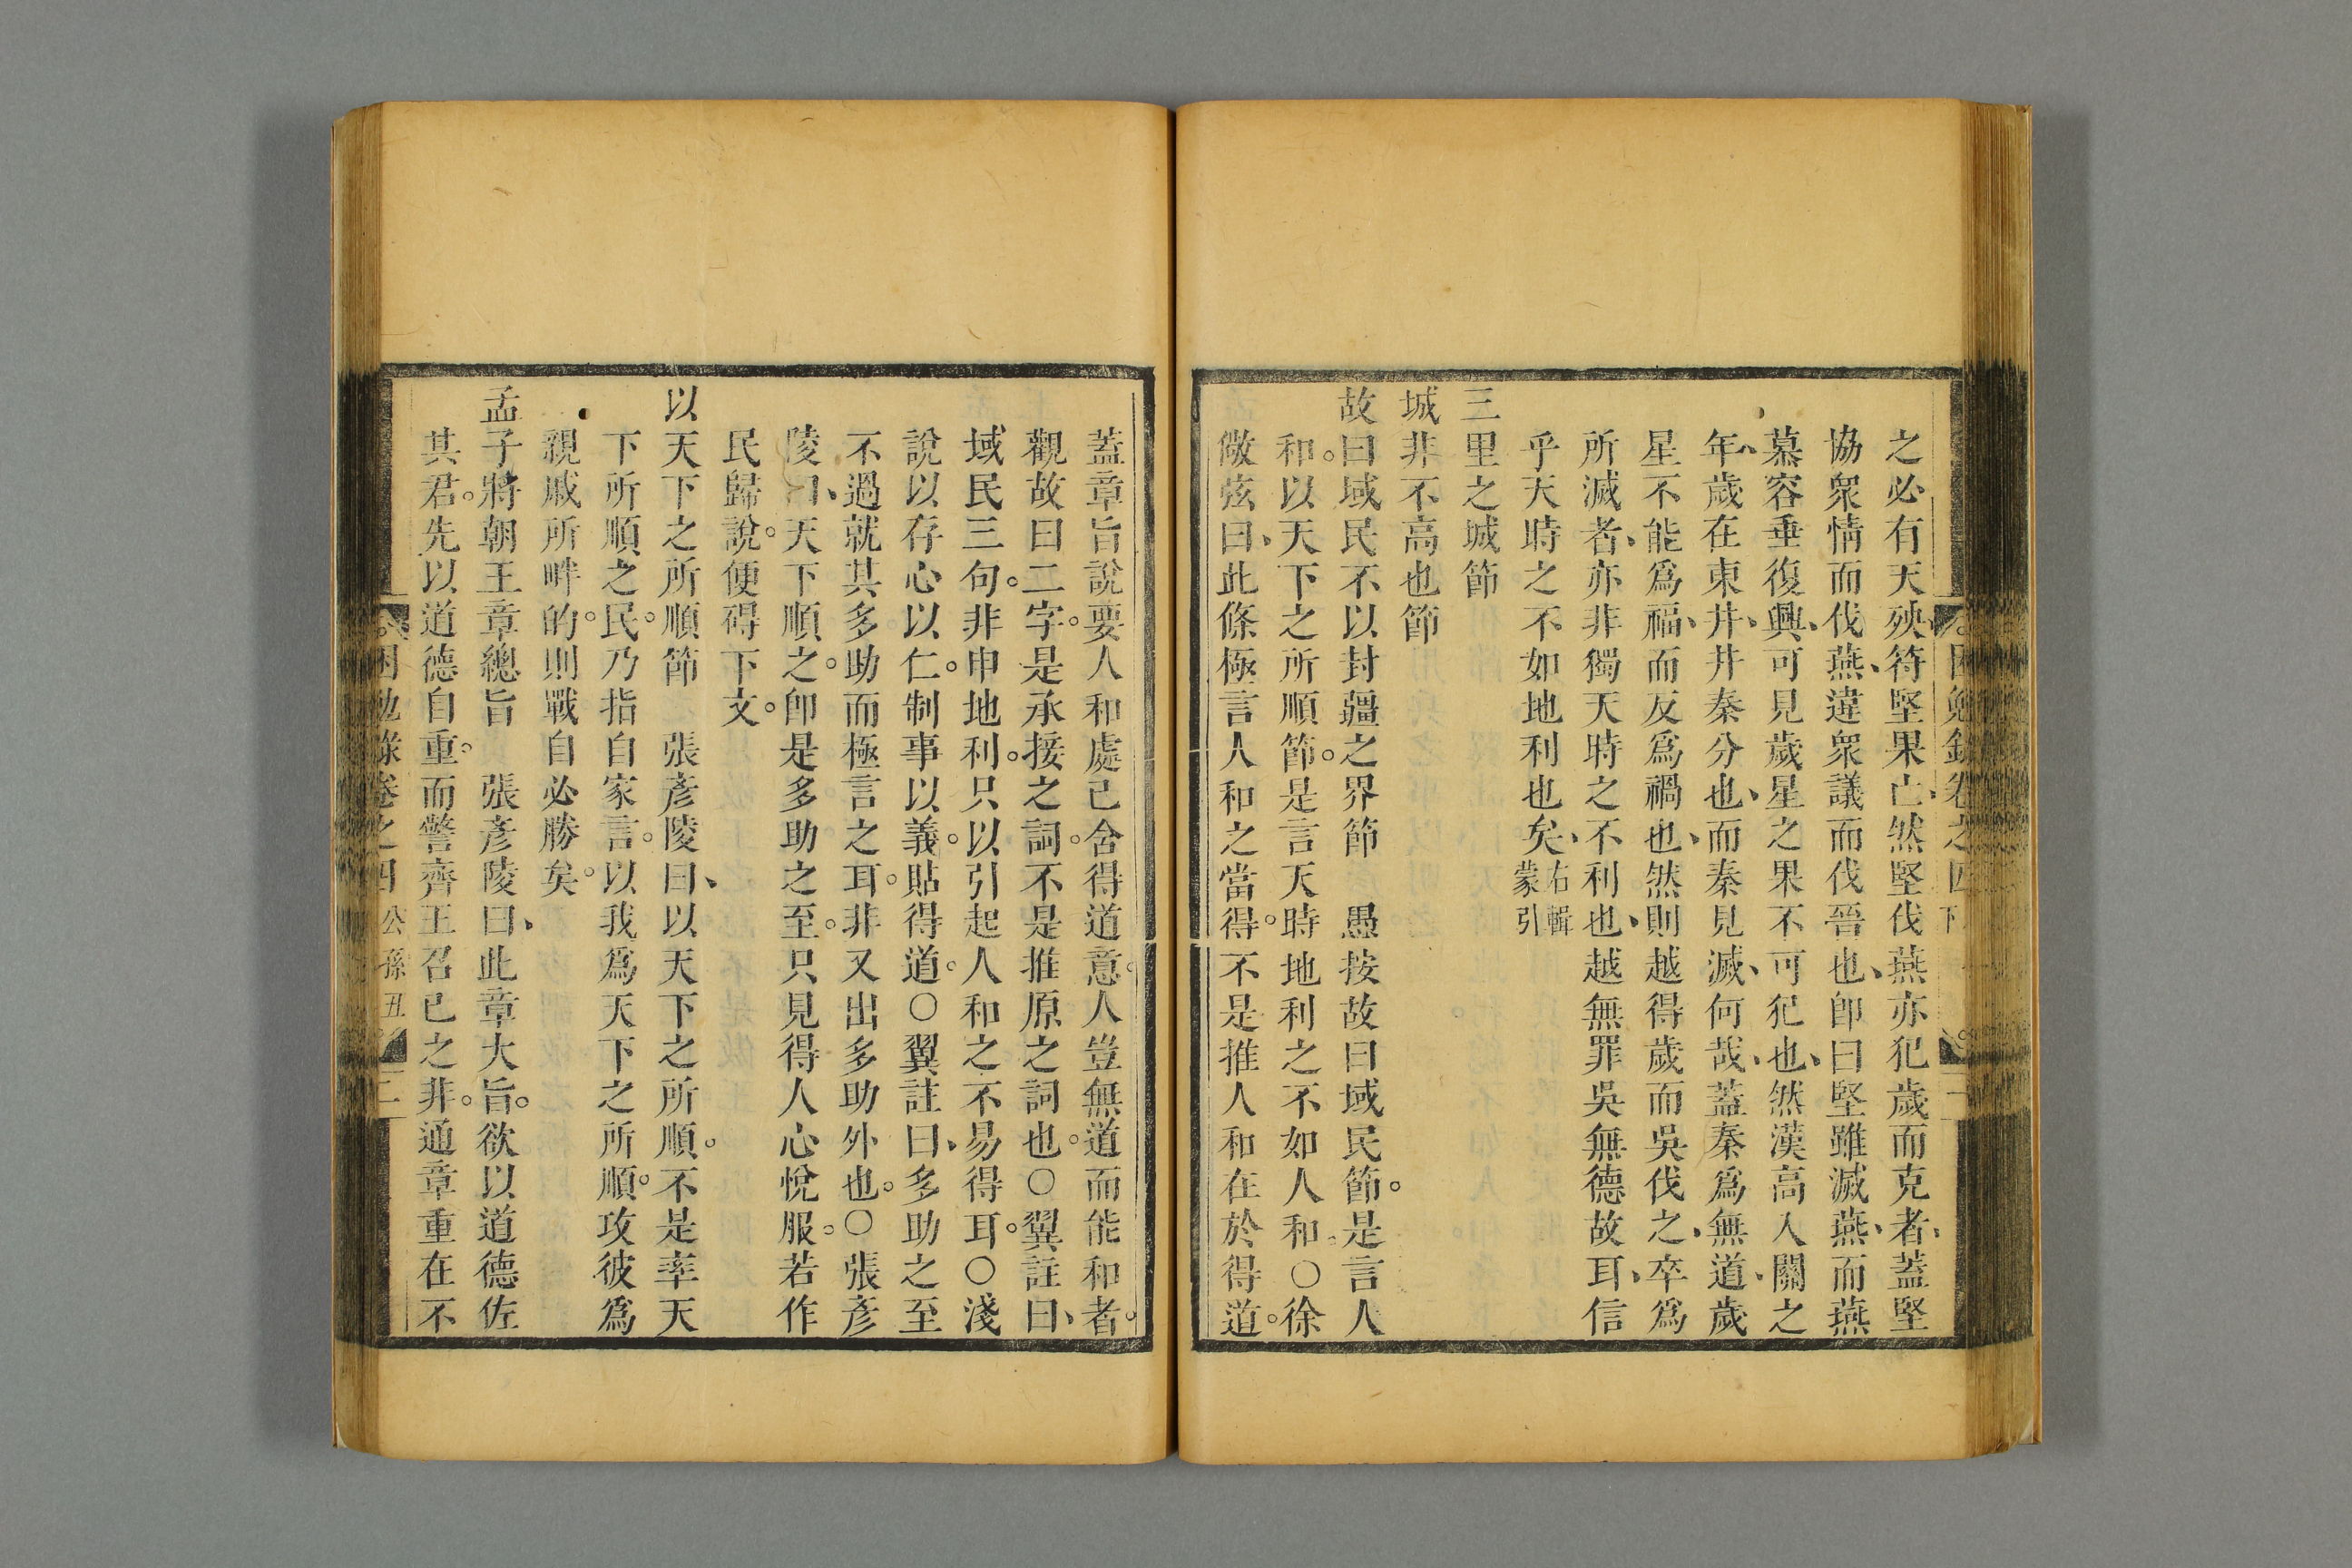 之必有天殃、符堅果亡、然堅伐燕亦犯歲而克者、蓋堅
協衆情而伐燕、違衆議而伐晉也、卽曰堅雖滅燕、而燕
慕容垂復興、可見歲星之果不可犯也、然漢高入關之
年、歲在東井、井秦分也、而秦見滅、何哉、蓋秦爲無道、歲
星不能爲福、而反爲禍也、然則越得歲而吳伐之、卒爲
所滅者、亦非獨天時之不利也、越無罪吳無德故耳、信
乎天時之不如地利也矣、右輯蒙引
三里之城節
城非不高也節
故曰域民不以封疆之界節　愚按故曰域民節。是言人
和。以天下之所順節。是言天時地利之不如人和。○徐
儆弦曰、此條極言人和之當得。不是推人和在於得道。
蓋章旨說要人和處已含得道意。人豈無道而能和者。
觀故曰二字。是承接之詞。不是推原之詞也。○翼註曰、
域民三句。非申地利。只以引起人和之不易得耳。○淺
說以存心以仁。制事以義。貼得道。○翼註曰、多助之至
不過就其多助而極言之耳。非又出多助外也。○張彥
陵曰、天下順之。卽是多助之至。只見得人心悅服。若作
民歸說。便碍下文。
以天下之所順節　張彥陵曰、以天下之所順。不是率天
下所順之民。乃指自家言。以我爲天下之所順。攻彼爲
親戚所畔的。則戰自必勝矣。
孟子將朝王章總旨　張彥陵曰、此章大旨。欲以道德佐
其君。先以道德自重。而警齊王召已之非。通章重在不
困勉錄卷之四　公孫丑　二